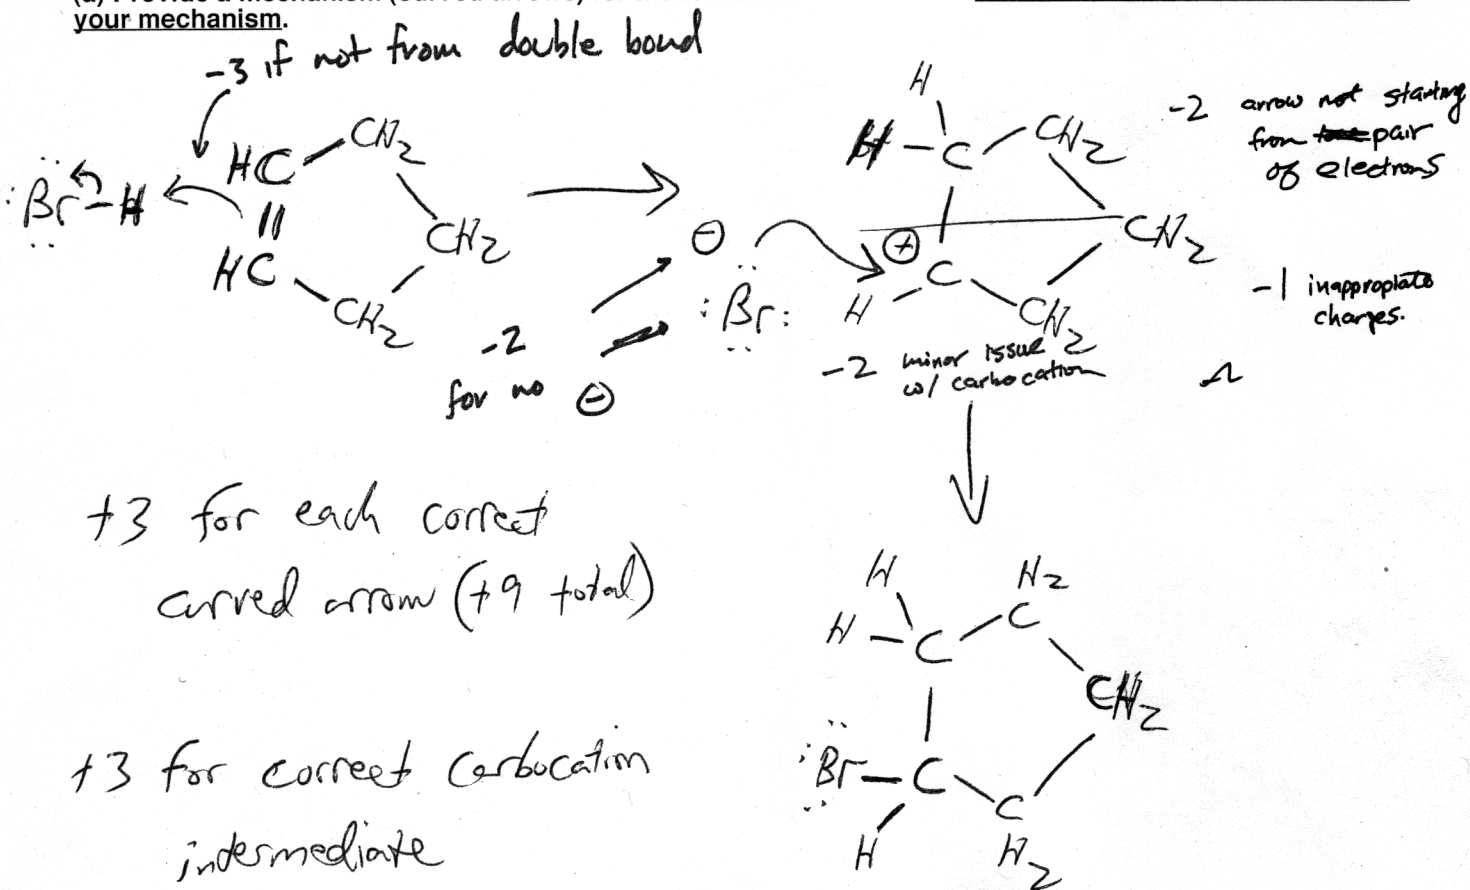 your mechanism.
-3 if not from double bond
:Br-H
HC
CH2
CH2
HC
CH2
-2
for no ⊖
⊖
:Br:
H
H
C
CH2
CH2
⊕
C
H
CH2
-2 minor issue
w/ carbocation
-2 arrow not starting
from pair
of electrons
-1 inappropiate
charges.
+3 for each correct
curved arrow (+9 total)
+3 for correct carbocation
intermediate
H
H2
H
C
C
CH2
:Br
C
C
H
H2